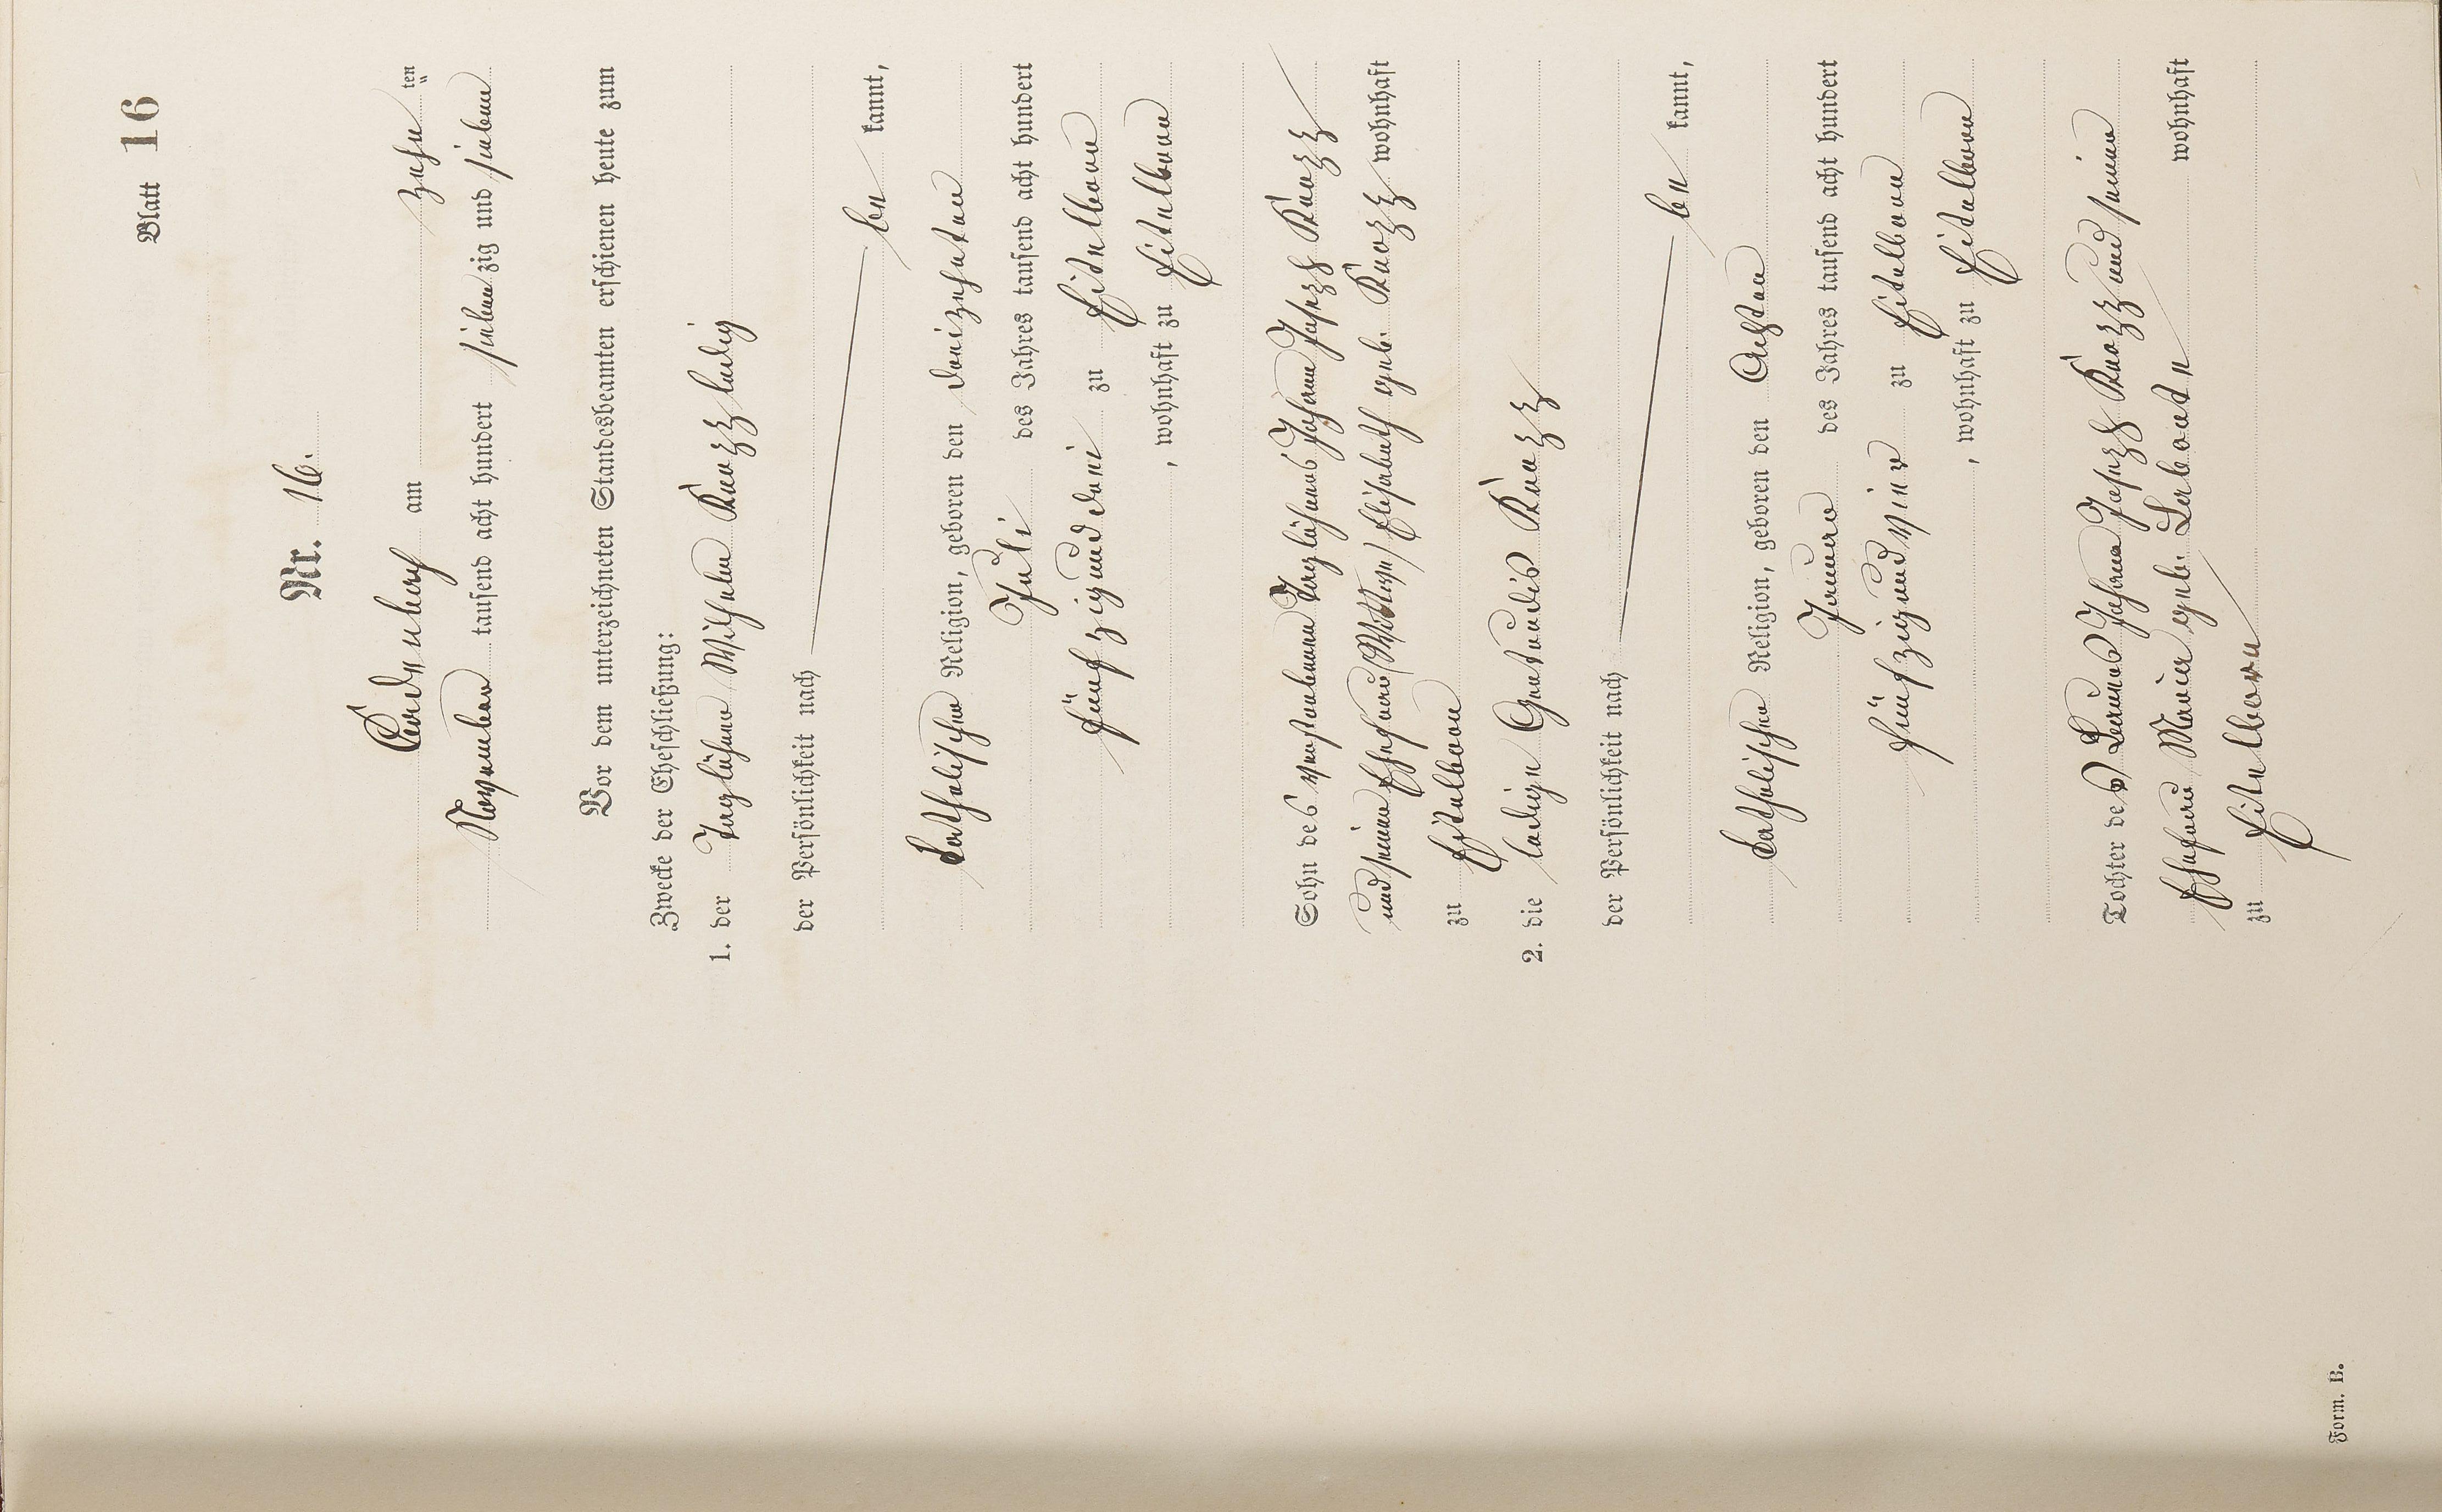 Blatt 16
Nr. 16.
Cadenberg am zehn ten
November tausend acht hundert siebenzig und sieben
Vor dem unterzeichneten Standesbeamten erschienen heute zum
Zwecke der Eheschließung:
1. der Taglöhner Wilhelm Knopp ledig
der Persönlichkeit nach
be kannt,
katholischer Religion, geboren den dreizehnten
Juli des Jahres tausend acht hundert
fünfzigunddrei zu Eitelborn
, wohnhaft zu Eitelborn
Sohn des verstorbenen Taglöhners Johann Joseph Knopp
und seiner Ehefrau (Wittwe) Elisabeth geb. Knopp wohnhaft
zu Eitelborn
2. die ledige Gertrudis Knopp
der Persönlichkeit nach
be kannt,
katholischer Religion, geboren den Achten
Januar des Jahres tausend acht hundert
fünfzigundvier zu Eitelborn
, wohnhaft zu Eitelborn
Tochter des Johann Joseph Knopp und seiner
Ehefrau Maria geb. wohnhaft
zu Eitelborn
Form. B.